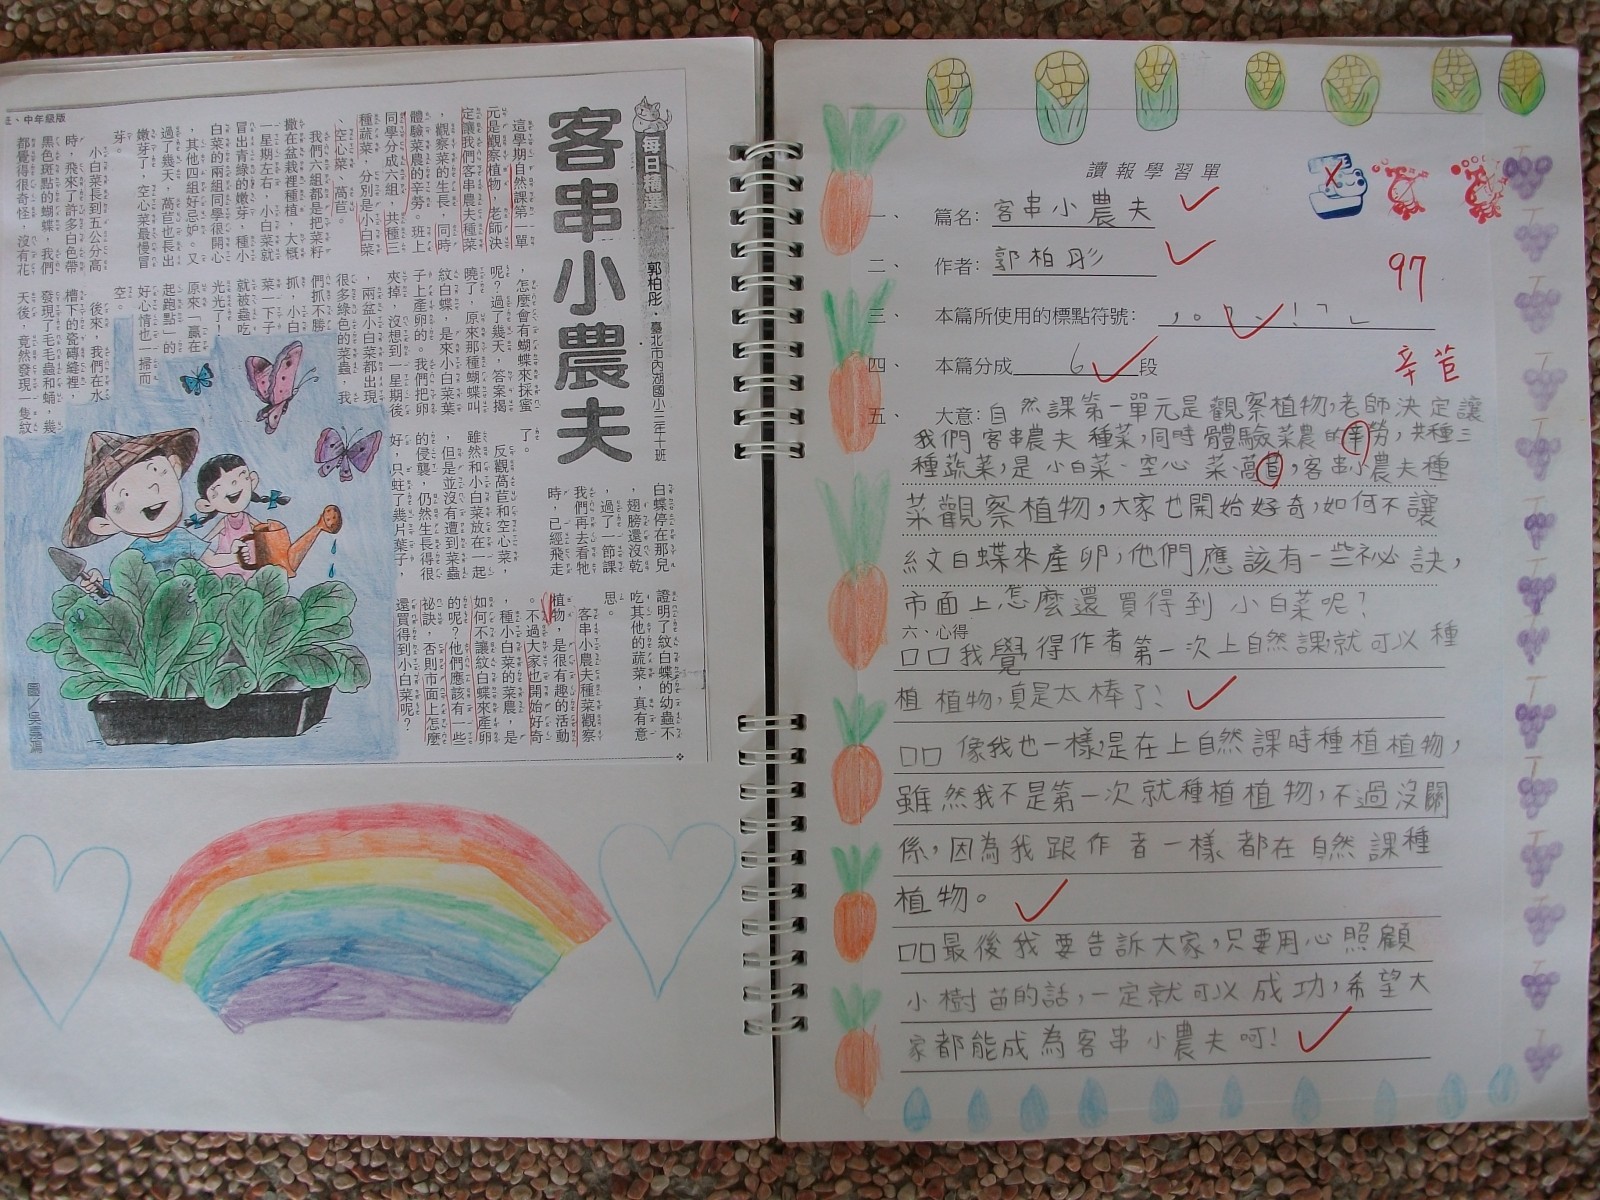 王、中年級版
每日精選
客串小農夫
郭柏彤．臺北市內湖國小三年十班
這學期自然課第一單
元是觀察植物，老師決
定讓我們客串農夫種菜
，觀察菜的生長，同時
體驗菜農的辛勞。班上
同學分成六組，共種三
種蔬菜，分別是小白菜
、空心菜、萵苣。
我們六組都是把菜籽
撒在盆栽裡種植，大概
一星期左右，小白菜就
冒出青綠的嫩芽，種小
白菜的兩組同學很開心
，其他四組好忌妒。又
過了幾天，萵苣也長出
嫩芽了，空心菜最慢冒
芽。
小白菜長到五公分高
時，飛來了許多白色帶
黑色斑點的蝴蝶，我們
都覺得很奇怪，沒有花
，怎麼會有蝴蝶來採蜜
呢？過了幾天，答案揭
曉了，原來那種蝴蝶叫
紋白蝶，是來小白菜葉
子上產卵的。我們把卵
夾掉，沒想到一星期後
，兩盆小白菜都出現
很多綠色的菜蟲，我
們抓不勝
抓，小白
菜一下子
就被蟲吃
光光了！
原來「贏在
起跑點」的
好心情也一掃而
空。
後來，我們在水
槽下的瓷磚縫裡，
發現了毛毛蟲和蛹，幾
天後，竟然發現一隻紋
白蝶停在那兒
，翅膀還沒乾
，過了一節課
我們再去看牠
時，已經飛走
了。
反觀萵苣和空心菜，
雖然和小白菜放在一起
，但是並沒有遭到菜蟲
的侵襲，仍然生長得很
好，只蛀了幾片葉子，
證明了紋白蝶的幼蟲不
吃其他的蔬菜，真有意
思。
客串小農夫種菜觀察
植物，是很有趣的活動
。不過大家也開始好奇
，種小白菜的菜農，是
如何不讓紋白蝶來產卵
的呢？他們應該有一些
祕訣，否則市面上怎麼
還買得到小白菜呢？
讀報學習單
一、 篇名：客串小農夫
二、 作者：郭柏彤
97
三、 本篇所使用的標點符號：，。？、！「」
四、 本篇分成 6 段
辛苣
五、 大意：自然課第一單元是觀察植物，老師決定讓
我們客串農夫種菜，同時體驗菜農的辛勞，共種三
種蔬菜，是小白菜、空心菜、萵苣，客串小農夫種
菜觀察植物，大家也開始好奇，如何不讓
紋白蝶來產卵，他們應該有一些祕訣，
市面上怎麼還買得到小白菜呢？
六、心得
□□我覺得作者第一次上自然課就可以種
植植物，真是太棒了！
□□像我也一樣是在上自然課時種植植物，
雖然我不是第一次就種植植物，不過沒關
係，因為我跟作者一樣都在自然課種
植物。
□□最後我要告訴大家，只要用心照顧
小樹苗的話，一定就可以成功，希望大
家都能成為客串小農夫呵！